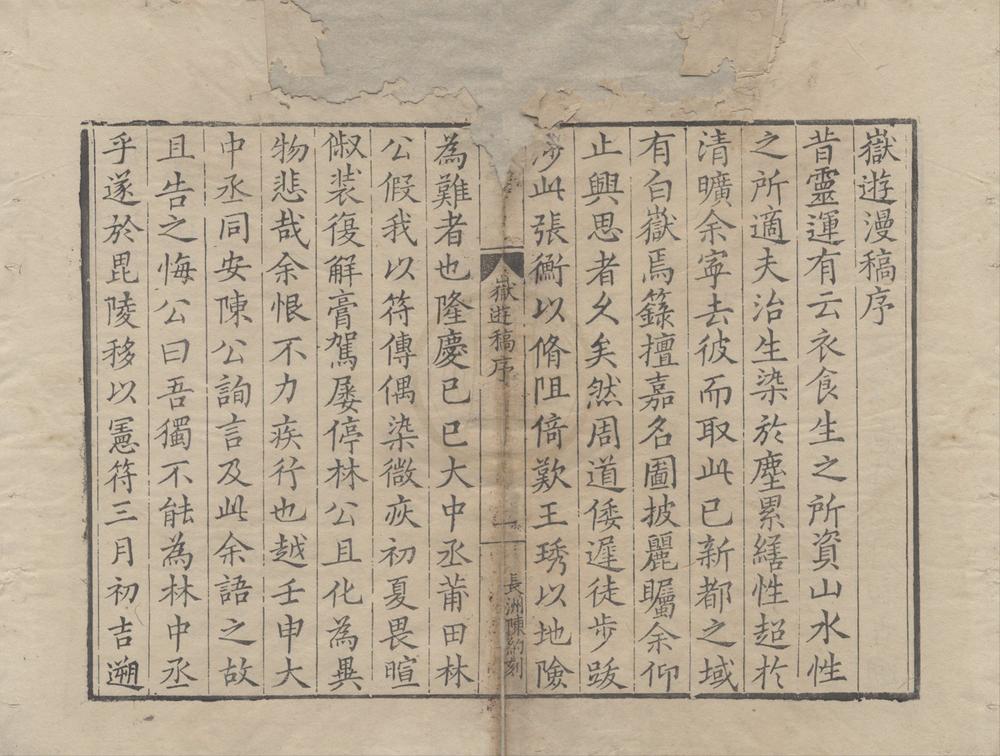 嶽遊漫稿序
昔靈運有云衣食生之所資山水性
之所適夫治生染於塵累繕性超於
清曠余寧去彼而取此已新都之域
有白嶽焉籙擅嘉名圖披麗矚余仰
止興思者久矣然周道倭遲徒步跋
涉此張衡以脩阻倚歎王琇以地險
嶽遊稿序
一
長洲陳約刻
為難者也隆慶己巳大中丞莆田林
公假我以符傳偶染微疢初夏畏暄
俶裝復解膏駕屡停林公且化為異
物悲哉余恨不力疾行也越壬申大
中丞同安陳公詢言及此余語之故
且告之悔公曰吾獨不能為林中丞
乎遂於毘陵移以憲符三月初吉遡